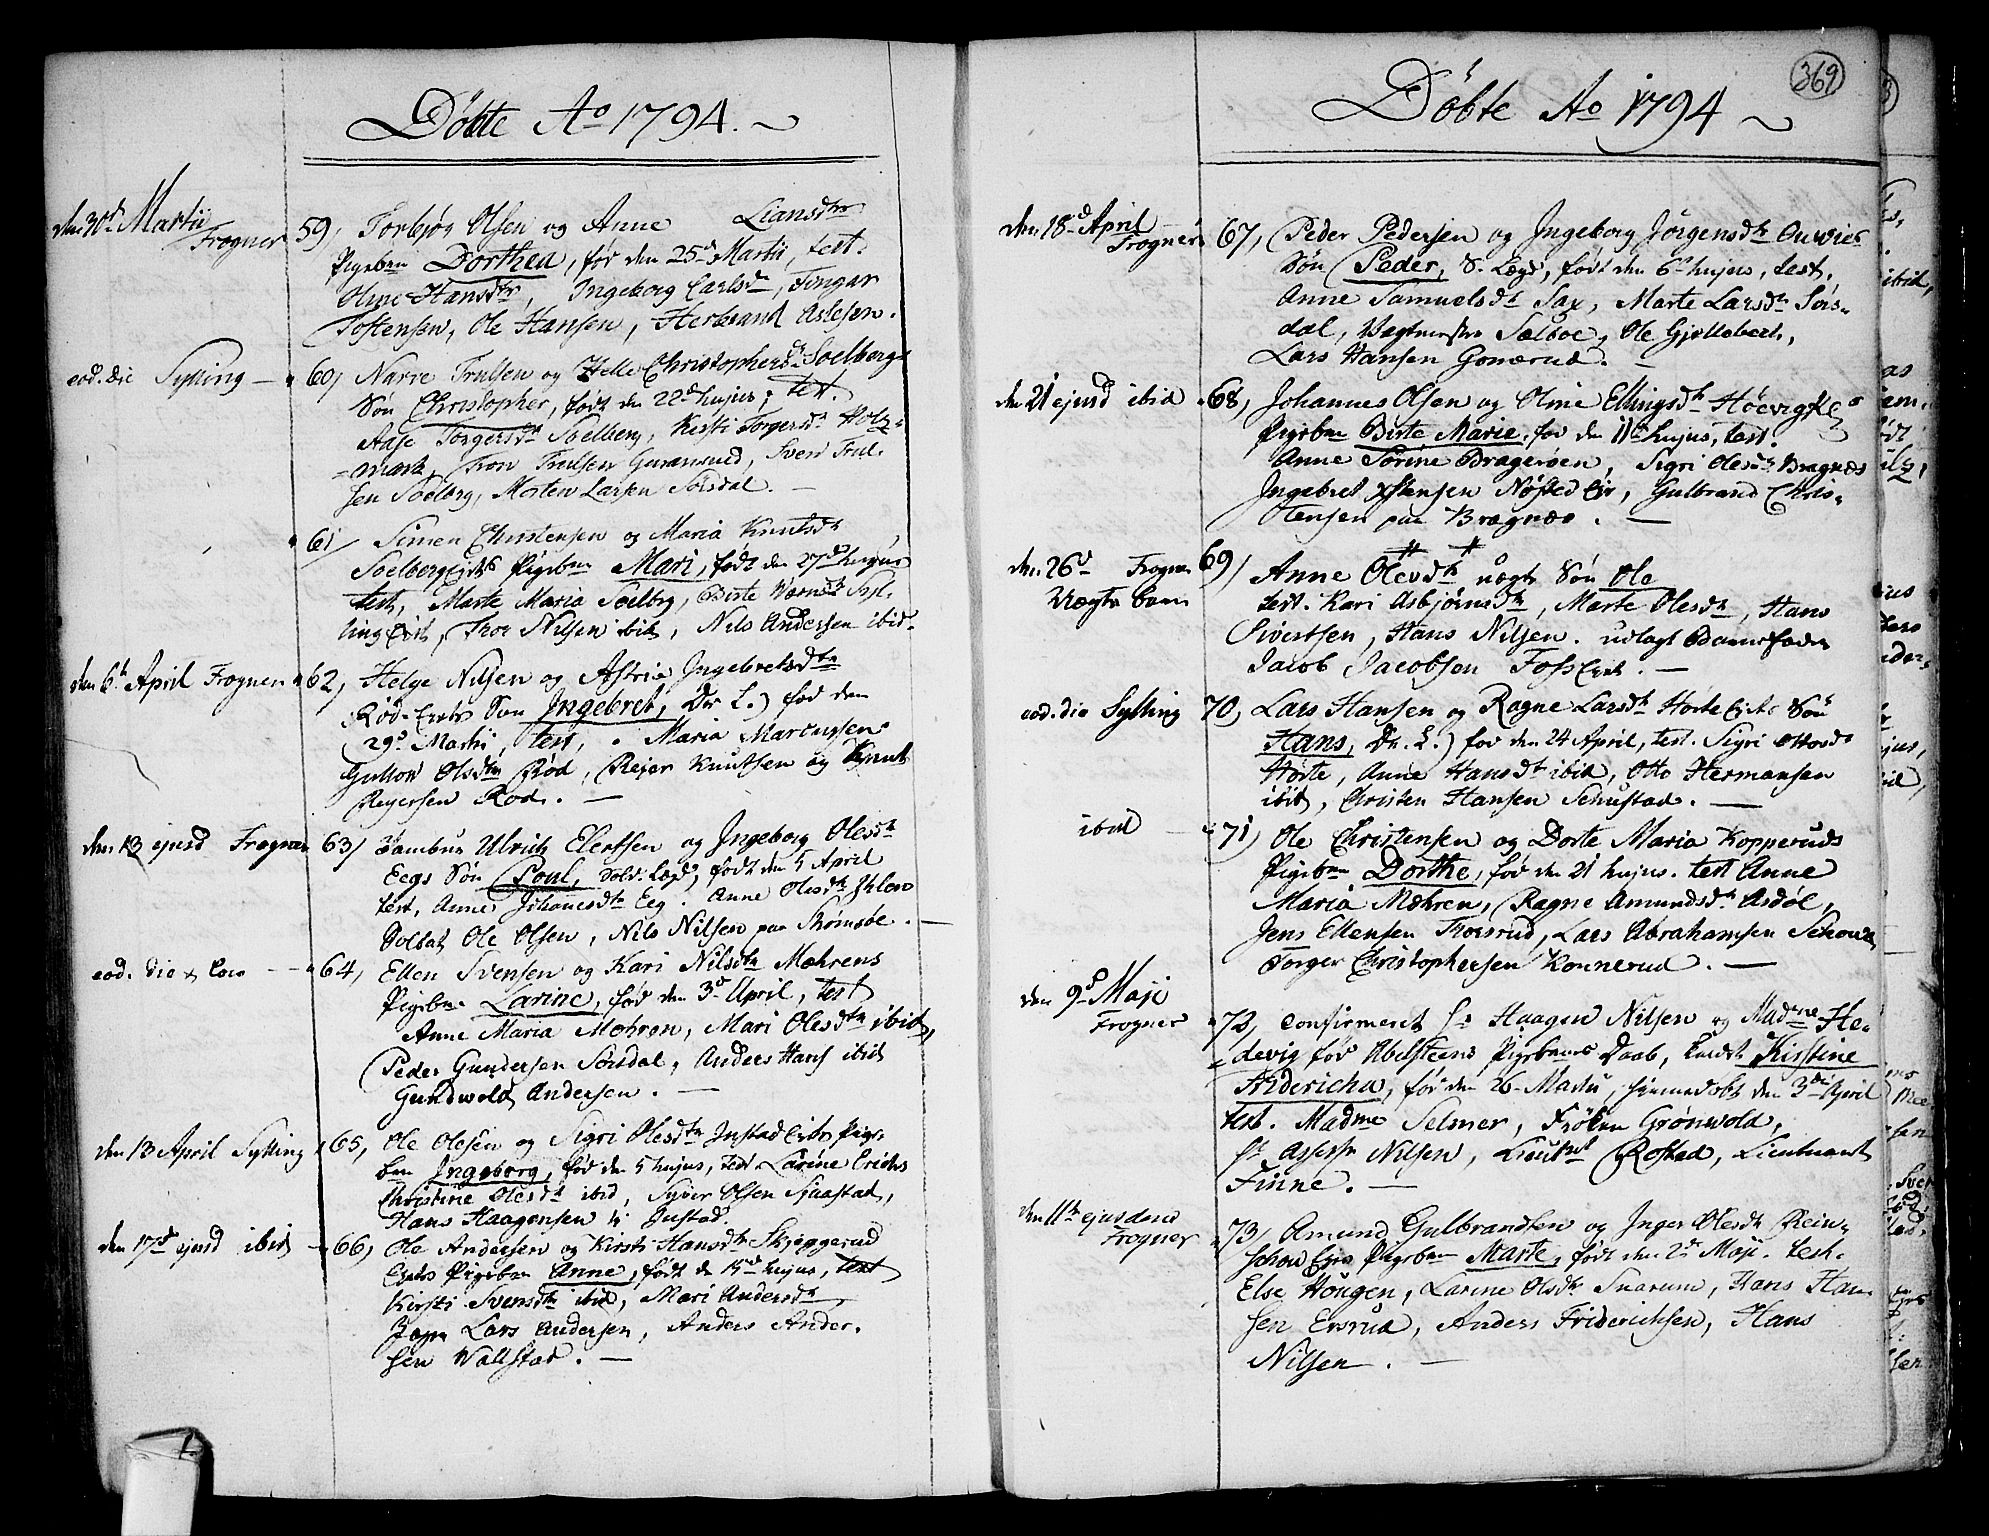 Döbte Ao 1794.
den 30d Martii
Frogner
59, Torbjør Olsen og Anne Liansdtr
Pigebn Dorthea, før den 25d Martii, test.
Oline Hansdtr, Ingeborg Carlsdtr,
Tostensen, Ole Hansen, Herbrand Aslesen.
eod. die Sylling
60, Narve Trulsen og Helle Christophersdr Soelbergs
Søn Christopher, født den 22d hujus, test.
Aase Torgersdtr Soelberg, Kirsti Torgersdtr Holz-
mark, Tron Trulsen, Sven Trul-
sen Soelberg, Morten Larsen Sørsdal.
61, Simen Christensen og Maria Knutsdtr
Soelberg Pigebn Mari, født den 27d hujus
test, Marte Maria Soelberg, Birte Syl-
ling, Nilsen ibid, Nils Andersen ibid.
den 6te April Frogner
62, Helge Nilsen og Astrid Ingebretsdtr
Rød Eiets Søn Ingebret, Dr L.) fød den
29d Martii, test, Maria Marcussen
Olsdtr Rød, Rejer Knutsen og Knut
Reyersen Rød.
den 13 ejusd Frogner
63, Tambur Ulrich Elertsen og Ingeborg Olesdtr
Eegs Søn Poul, Sold. Lægd, født den 5 April
test, Anne Johanesdtr Eeg. Anne Olesdtr
Soldat Ole Olsen, Nils Nilsen paa Strømsøe.
eod. die & loco
64, Ellen Svensen og Kari Nilsdtr Mæhrens
Pigebn Larine, før den 3d April, test
Anne Maria Mæhren, Mari Olesdtr ibid,
Peder Gundersen Sørsdal, Anders Hans ibid
Gundvold Andersen.
den 13 April Sylling
65, Ole Olesen og Sigri Olesdtr Justad Eiets Pige-
bn Ingeborg, født den 5 hujus, test Larine Erichs
Christine Olesdtr ibid, Syver Olsen Sjaastad,
Hans Haagensen Justad.
den 17d ejusd ibid
66, Ole Andersen og Kirsti Hansdtr Skjeggerud
Ejets Pigebn Anne, født d hujus, test
Kirsti Svensdtr ibid, Mari Andersdtr
Lars Andersen, Anders Ander-
sen Wallstad.
369
Döbte Ao 1794
den 18d April
Frogner
67, Peder Pedersen og Ingeborg Jörgensdtr
Søn Peder, S. Lægd, født den 6te hujus, test.
Anne Samuelsdtr Sax, Marte Larsdtr Sørs-
dal, Vagtmester Sælboe, Ole Gjellebech,
Lars Hansen Gomerud.
den 21 ejusd ibid
68, Johannes Olsen og Oline Ellingsdtr
Pigebn Birte Marie, før den 11te hujus, test.
Anne Sørine Bragerøen, Sigri Olesdtr Bragnæs
Ingebret Xstensen Nøsted Eie, Gulbrand Chris-
tensen paa Bragnæs.
den 26d Frogner
Uægte barn
69, Anne Olevdtr uægte Søn Ole
test. Kari Asbjørnsdtr, Marte Olesdtr, Hans
Sivertsen, Hans Nilsen. udlagt Barnefader
Jacob Jacobsen Foss Eiet.
eod. die Sylling
70, Lars Hansen og Ragne Larsdtr Horte Eiets Søn
Hans, Dr. L.) før den 24 April, test. Sigri Ottosdtr
Horte, Anne Hansdtr ibid, Otto Hermansen
ibid, Christen Hansen Schustad.
ibid
71, Ole Christensen og Dorte Maria Kopperuds
Pigebn Dorthe, før den 21 hujus. test Anne
Maria Mæhren, Ragne Amundsdtr Asdøl,
Jens Ellensen Tronsrud, Lars Abrahamsen
Torger Christophersen Konnerud.
den 9d Maji
Frogner
72, Confirmeret Hr Haagen Nilsen og Madme He-
devig før Abelsteens Pigebarns Daab, kaldt Kirstine
Fridericha, før den 26 Martii, hiemmedøbt den 3die April
test. Madme Selmer, Frøken Grønvold,
Hr Assessr Nilsen, Lieutnt Rostad, Lieutnant
Finne.
den 11te ejusdem
Frogner
73, Amund Gulbrandsen og Inger Olesdtr Rein-
schou Ejes Pigebn Marte, født den 2d Maji. test.
Else Hougen, Larine Olsdtr Snarum, Hans Han-
sen Ersrud, Anders Friderichsen, Hans
Nilsen.